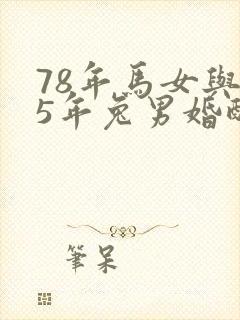 78年馬女與
5年兔男婚配
筆呆